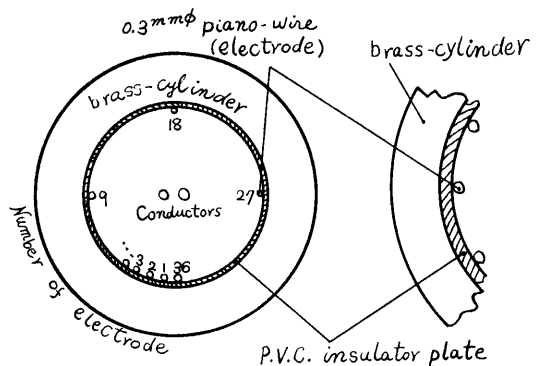 0.3mmφ piano-wire
(electrode)
brass-cylinder
brass-cylinder
18
9
27
Conductors
...3 2 1 36
Number of electrode
P.V.C. insulator plate